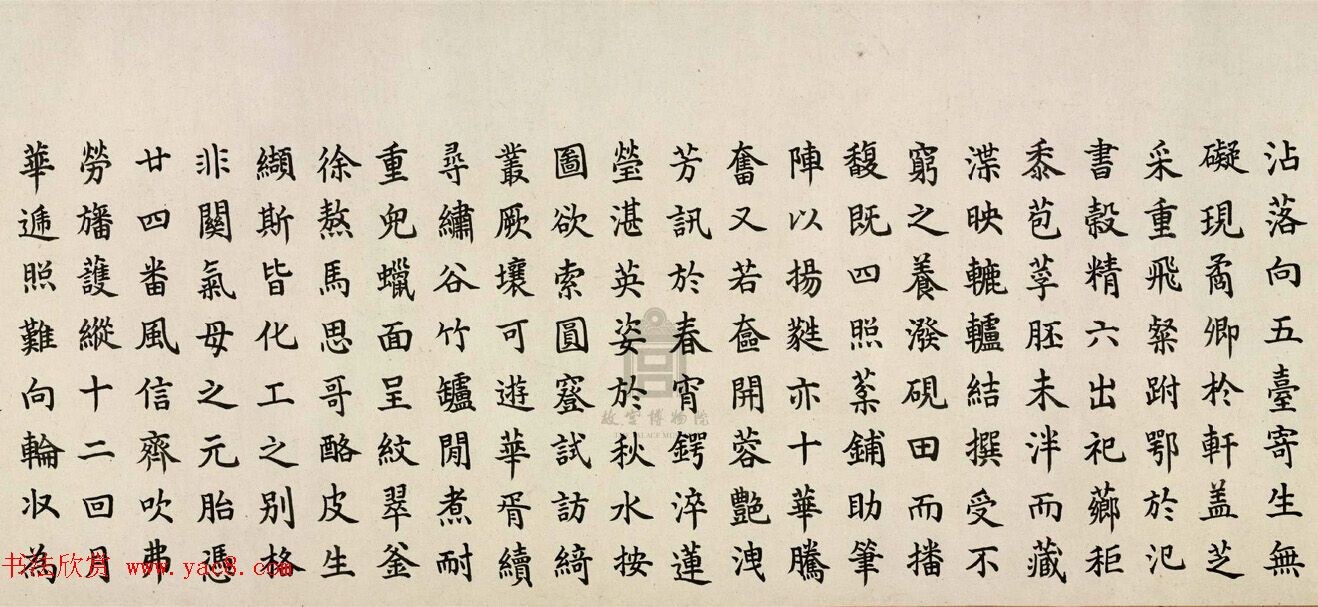 沾落向五臺寄生無
礙現矞卿於軒盖芝
采重飛粲跗鄂於氾
書穀精六出祀薌秬
黍苞莩胚未泮而藏
渫映轆轤結撰受不
窮之養潑硯田而播
馥既四照葉鋪助筆
陣以揚蕤亦十華騰
奮又若奩開蓉艷洩
芳訊於春宵鍔淬蓮
瑩湛英姿於秋水按
圖欲索圓窪試訪綺
叢厥壤可遊華胥續
尋繡谷竹罏閒煮耐
重兜蠟面呈紋翠釜
徐熬馬思哥酪皮生
纈斯皆化工之別格
非關氣母之元胎憑
廿四番風信齊吹弗
勞旛護縱十二回月
華遞照難向輪收為
故宮博物院
书法欣赏 www.yac8.com